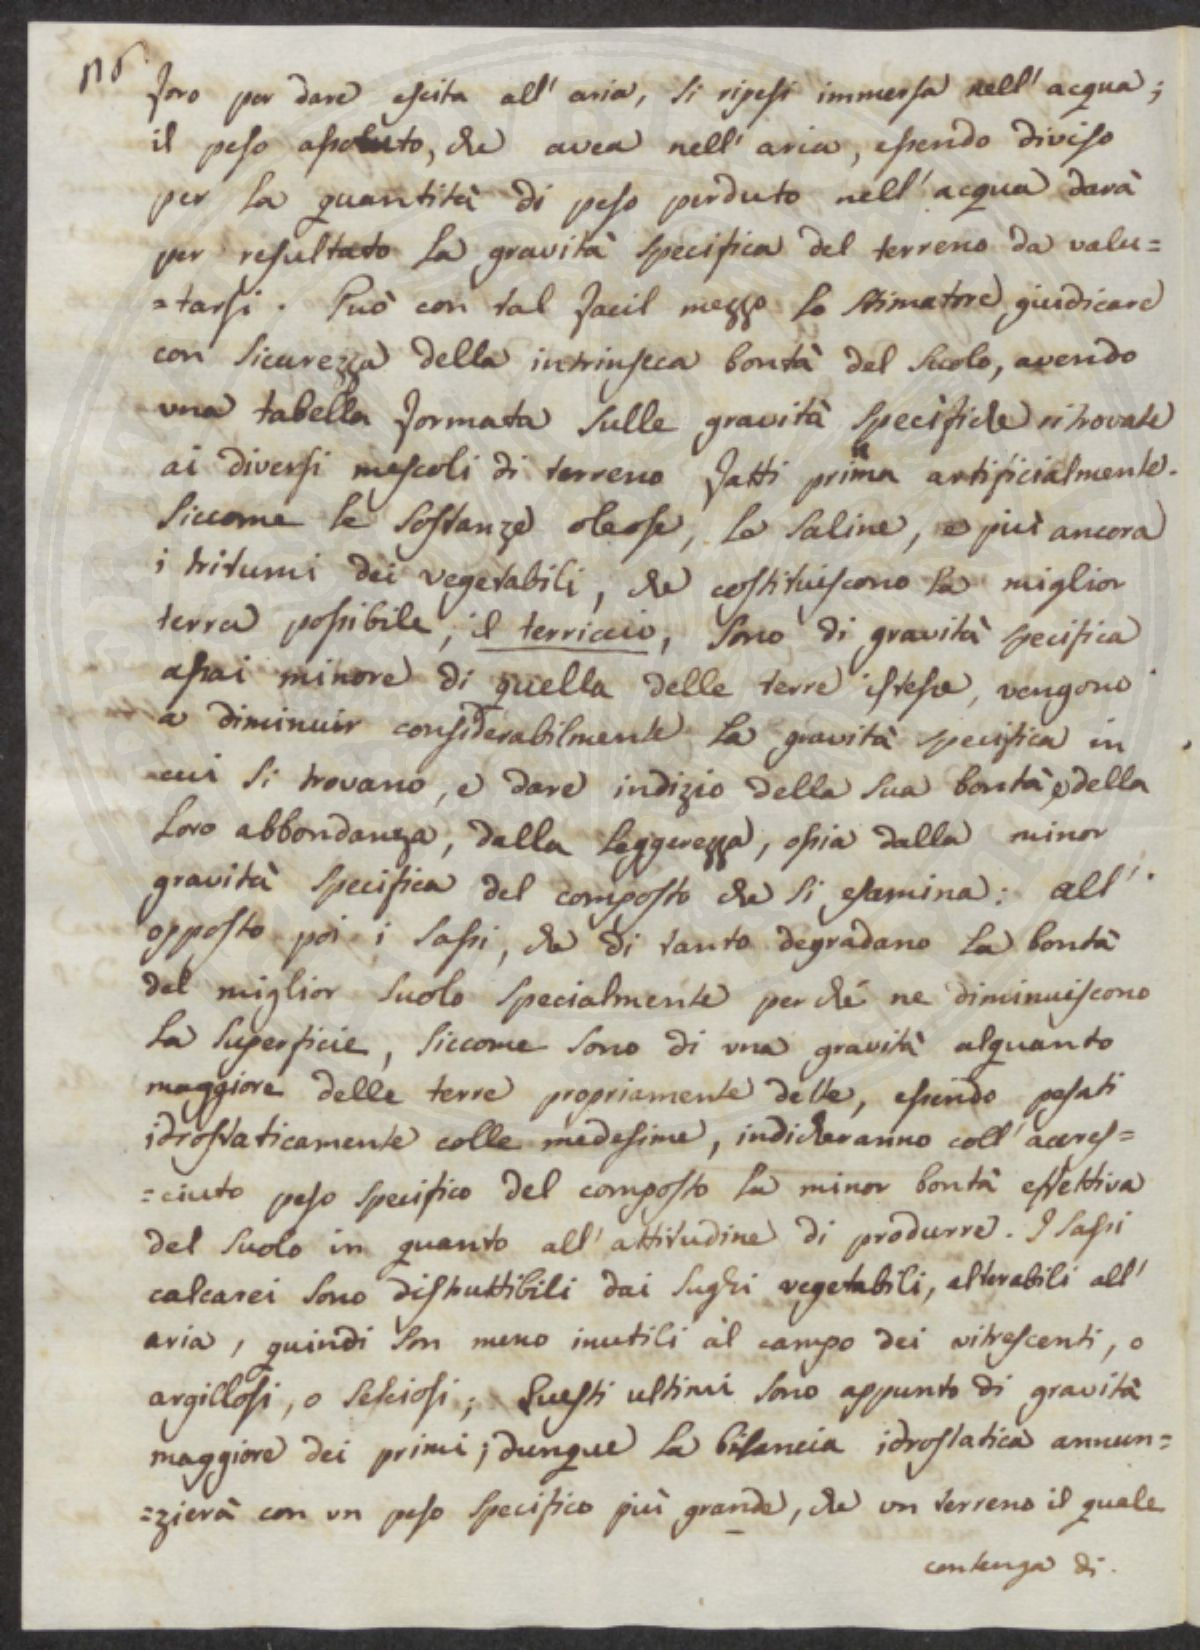 116.
foro per dare escita all' aria, si ripesi immersa nell' acqua;
il peso assoluto, che avea nell' aria, essendo diviso
per la quantità di peso perduto nell' acqua darà
per resultato la gravità specifica del terreno da valu=
=tarsi. Può con tal facil mezzo lo Stimatore giudicare
con sicurezza della intrinseca bontà del suolo, avendo
una tabella formata sulle gravità specifiche ritrovate
ai diversi mescoli di terreno fatti prima artificialmente.
Siccome le sostanze oleose, le saline, e più ancora
i tritumi dei vegetabili, che costituiscono la miglior
terra possibile, il terriccio, sono di gravità specifica
assai minore di quella delle terre istesse, vengono
a diminuir considerabilmente la gravità specifica in
cui si trovano, e dare indizio della sua bontà, e della
loro abbondanza, dalla leggerezza, ossia dalla minor
gravità specifica del composto che si esamina: all'
opposto poi i sassi, che di tanto degradano la bontà
del miglior suolo specialmente perché ne diminuiscono
la superficie, siccome sono di una gravità alquanto
maggiore delle terre propriamente dette, essendo pesati
idrostaticamente colle medesime, indicheranno coll' acres=
=ciuto peso specifico del composto la minor bontà effettiva
del suolo in quanto all' attitudine di produrre. I sassi
calcarei sono distruttibili dai sughi vegetabili, alterabili all'
aria, quindi son meno inutili al campo dei vitrescenti, o
argillosi, o selciosi; Questi ultimi sono appunto di gravità
maggiore dei primi; dunque la bilancia idrostatica annun=
=zierà con un peso specifico più grande, che un terreno il quale
contenga di